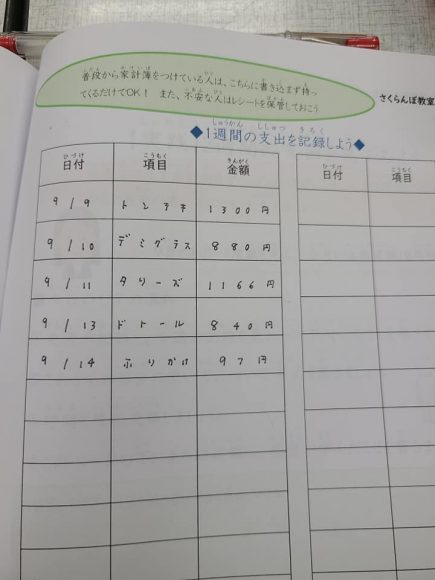 普段から家計簿をつけている人は、こちらに書き込まず持っ
てくるだけでOK！ また、不安な人はレシートを保管しておこう
さくらんぼ教室
◆1週間の支出を記録しよう◆
日付 項目 金額 日付 項目
9/9 トンテキ 1300円
9/10 デミグラス 880円
9/11 タリーズ 1166円
9/13 ドトール 840円
9/14 ふりかけ 97円